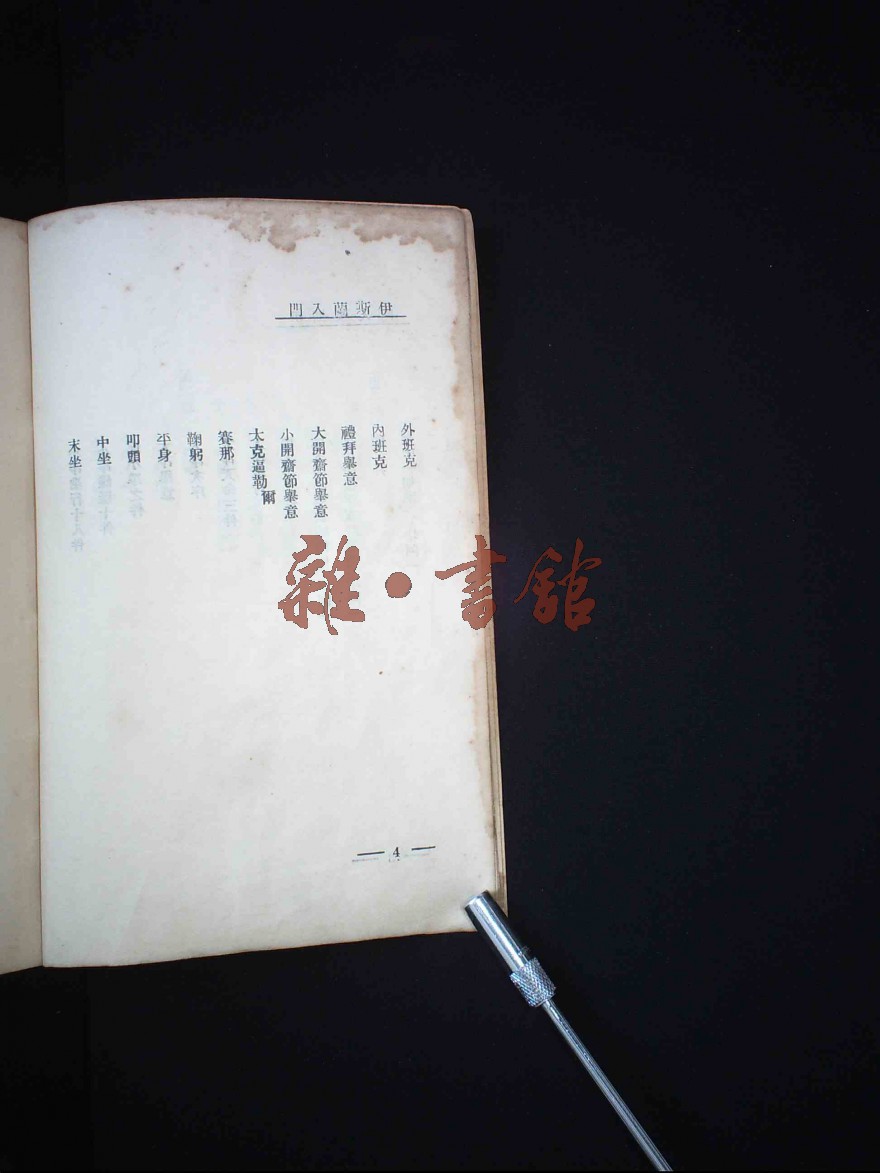 伊斯蘭入門
外班克
內班克
禮拜舉意
大開齋節舉意
小開齋節舉意
太克逼勒爾
賽那
鞠躬
平身
叩頭
中坐
末坐
4
雜·書館